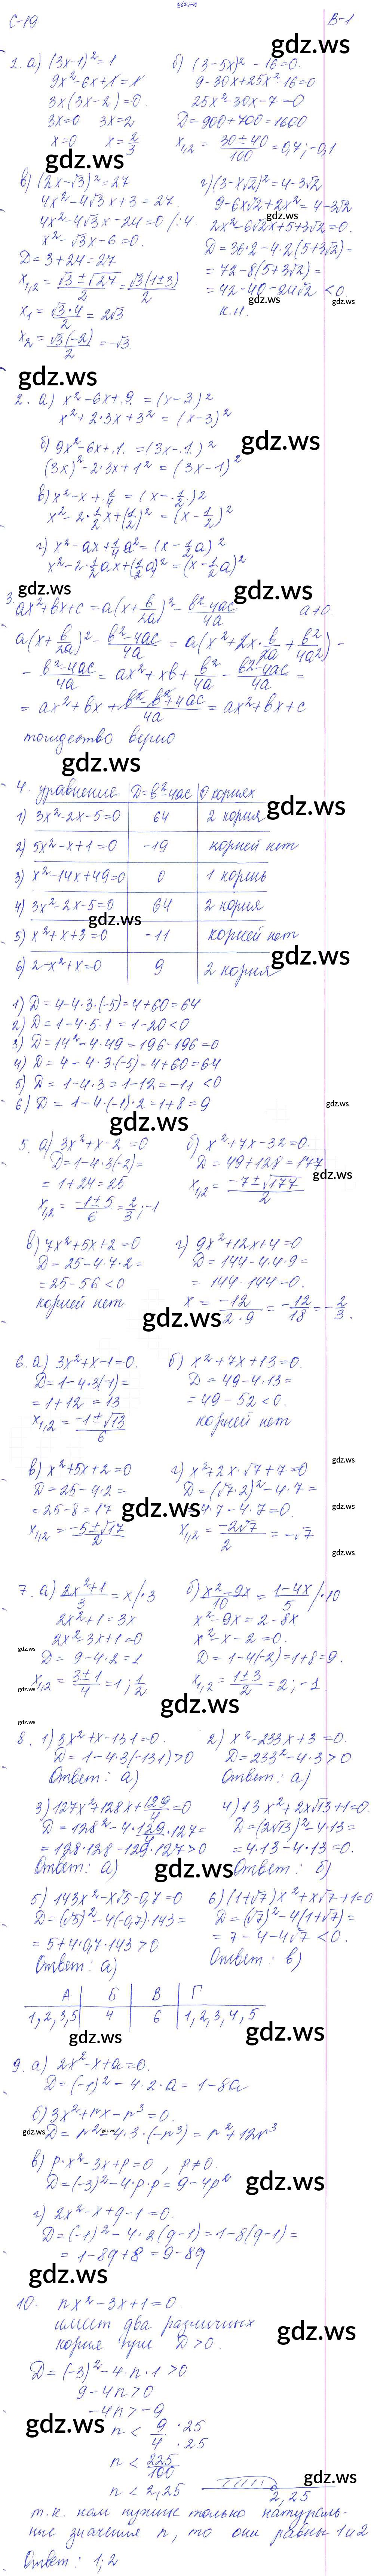 gdz.ws
С-19 В-1
gdz.ws
1. а) (3x-1)²=1
9x²-6x+1=1
3x(3x-2)=0.
3x=0 3x=2
x=0 x=2/3
б) (3-5x)²-16=0.
9-30x+25x²-16=0
25x²-30x-7=0
D=900+700=1600
x₁,₂ = (30±40)/100 = 0,7; -0,1
gdz.ws
в) (2x-√3)²=27
4x²-4√3x+3=27.
4x²-4√3x-24=0 /:4.
x²-√3x-6=0.
D=3+24=27
x₁,₂ = (√3±√27)/2 = √3(1±3)/2
x₁ = √3·4/2 = 2√3
x₂ = √3(-2)/2 = -√3
г) (3-x√2)²=4-3√2
9-6x√2+2x²=4-3√2
gdz.ws
2x²-6√2x+5+3√2=0.
D=36·2-4·2(5+3√2)=
=72-8(5+3√2)=
=72-40-24√2<0
gdz.ws
к.н.
gdz.ws
2. а) x²-6x+9=(x-3)²
x²+2·3x+3²=(x-3)²
gdz.ws
б) 9x²-6x+1=(3x-1)²
(3x)²-2·3x+1²=(3x-1)²
в) x²-x+1/4=(x-1/2)²
x²-2·1/2x+(1/2)²=(x-1/2)²
г) x²-ax+1/4a²=(x-1/2a)²
x²-2·1/2ax+(1/2a)²=(x-1/2a)²
gdz.ws gdz.ws
3. ax²+bx+c=a(x+b/2a)²-(b²-4ac)/4a a≠0
a(x+b/2a)²-(b²-4ac)/4a=a(x²+2x·b/2a+b²/4a²)-
-(b²-4ac)/4a=ax²+xb+b²/4a-(b²-4ac)/4a=
=ax²+bx+(b²-b²+4ac)/4a=ax²+bx+c
тождество верно
gdz.ws
4. уравнение D=b²-4ac О корнях
gdz.ws
1) 3x²-2x-5=0 64 2 корня
2) 5x²-x+1=0 -19 корней нет
3) x²-14x+49=0 0 1 корень
4) 3x²-2x-5=0 64 2 корня
gdz.ws
5) x²+x+3=0 -11 корней нет
gdz.ws
6) 2-x²+x=0 9 2 корня
1) D=4-4·3·(-5)=4+60=64
2) D=1-4·5·1=1-20<0
3) D=14²-4·49=196-196=0
4) D=4-4·3·(-5)=4+60=64
5) D=1-4·3=1-12=-11<0
6) D=1-4·(-1)·2=1+8=9
gdz.ws
gdz.ws
5. а) 3x²+x-2=0
D=1-4·3(-2)=
=1+24=25
x₁,₂=(-1±5)/6=2/3;-1
б) x²+7x-32=0.
D=49+128=177
gdz.ws
x₁,₂=(-7±√177)/2
в) 7x²+5x+2=0
D=25-4·7·2=
=25-56<0
корней нет
г) 9x²+12x+4=0
D=144-4·4·9=
=144-144=0.
x=-12/(2·9)=-12/18=-2/3.
gdz.ws
6. а) 3x²+x-1=0.
D=1-4·3(-1)=
=1+12=13
x₁,₂=(-1±√13)/6
б) x²+7x+13=0.
D=49-4·13=
=49-52<0.
корней нет
gdz.ws
в) x²+5x+2=0
D=25-4·2=
=25-8=17
x₁,₂=(-5±√17)/2
г) x²+2x·√7+7=0
D=(√7·2)²-4·7=
gdz.ws
4·7-4·7=0.
gdz.ws
x₁,₂=-2√7/2=-√7
gdz.ws
7. а) (2x²+1)/3=x/·3
2x²+1=3x
2x²-3x+1=0
D=9-4·2=1
x₁,₂=(3±1)/4=1;1/2
б) (x²-9x)/10=(1-4x)/5 /·10
x²-9x=2-8x
x²-x-2=0.
D=1-4(-2)=1+8=9.
x₁,₂=(1±3)/2=2;-1.
gdz.ws
gdz.ws
gdz.ws
gdz.ws
8. 1) 3x²+x-131=0.
D=1-4·3(-131)>0
Ответ: а)
2) x²-233x+3=0.
D=233²-4·3>0
Ответ: а)
3) 127x²+128x+129/4=0
D=128²-4·129/4·127=
=128·128-129·127>0
Ответ: а)
4) 13x²+2x√13+1=0.
D=(2√13)²-4·13=
=4·13-4·13=0.
gdz.ws
Ответ: б)
5) 143x²-x√5-0,7=0
D=(√5)²-4(-0,7)·143=
=5+4·0,7·143>0
Ответ: а)
6) (1+√7)x²+x√7+1=0
D=(√7)²-4(1+√7)=
=7-4-4√7<0.
Ответ: в)
А Б В Г
1,2,3,5 4 6 1,2,3,4,5
gdz.ws gdz.ws
9. а) 2x²-x+a=0.
D=(-1)²-4·2·a=1-8a
б) 3x²+nx-n³=0.
gdz.ws gdz.ws
D=n²-4·3·(-n³)=n²+12n³
в) p·x²-3x+p=0, p≠0.
D=(-3)²-4·p·p=9-4p²
gdz.ws
г) 2x²-x+q-1=0.
D=(-1)²-4·2(q-1)=1-8(q-1)=
=1-8q+8=9-8q
gdz.ws
10. nx²-3x+1=0.
имеет два различных
gdz.ws
корня при D>0.
D=(-3)²-4·n·1>0
9-4n>0
-4n>-9
gdz.ws
n<9/4 ·25/·25
n<225/100
gdz.ws
n<2,25 2,25
т.к. нам нужны только натураль-
ные значения n, то они равны 1 и 2
Ответ: 1;2